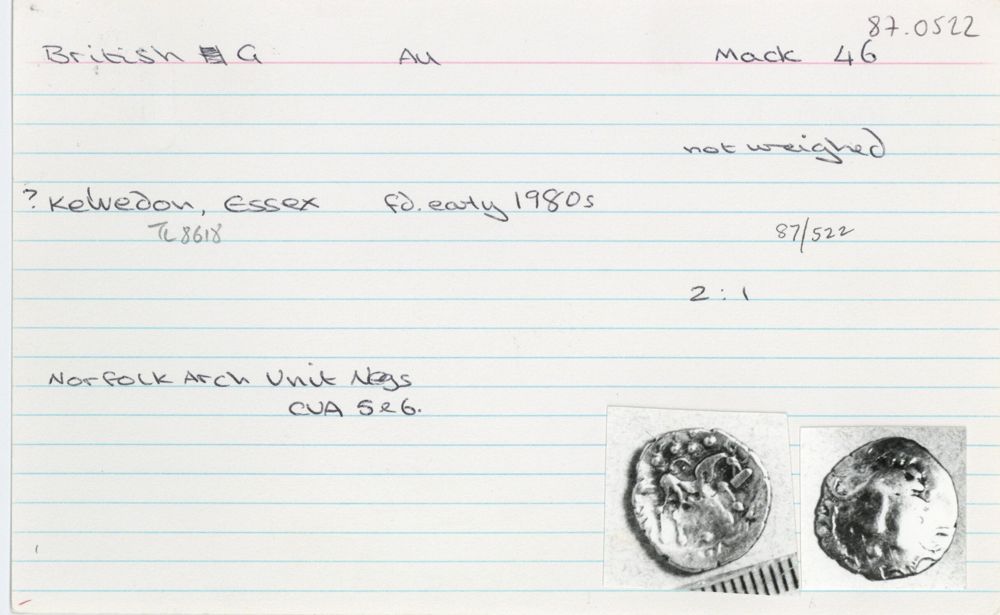 87.0522
British G Au Mack 46
not weighed
? Kelvedon, Essex fd. early 1980s
TL8618 87/522
2 : 1
Norfolk Arch Unit Negs
CUA 5 & 6.